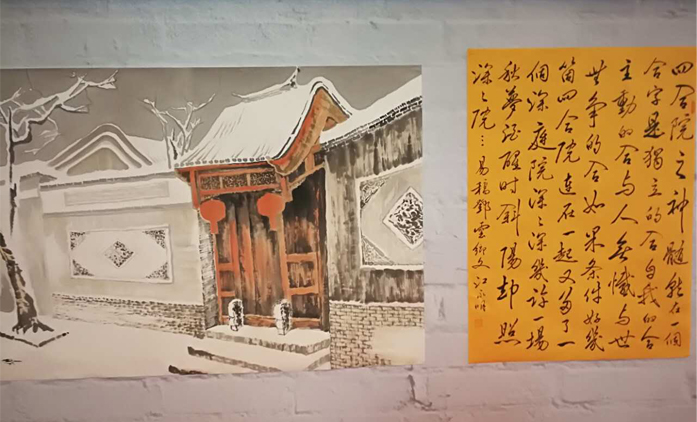 四合院之神髓就在一個
合字是獨立的合自我的合
主動的合与人無憾与世
無争的合如果条件好幾
箇四合院連在一起又多了一
個深庭院深〻深幾許一場
愁夢酒醒時斜陽却照
深〻院…鄧雲鄉文